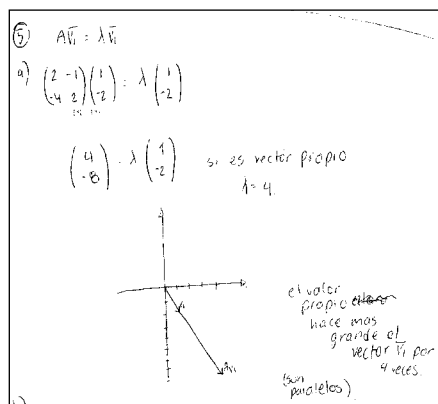 5 Av̄₁ = λv̄₁
a) (2 -1 / -4 2)(1 / -2) = λ (1 / -2)
(4 / -8) = λ (1 / -2) si es vector propio
λ = 4.
v₁
Av₁
el valor
propio
hace mas
grande el
vector v̄₁ por
4 veces.
(son
paralelos)